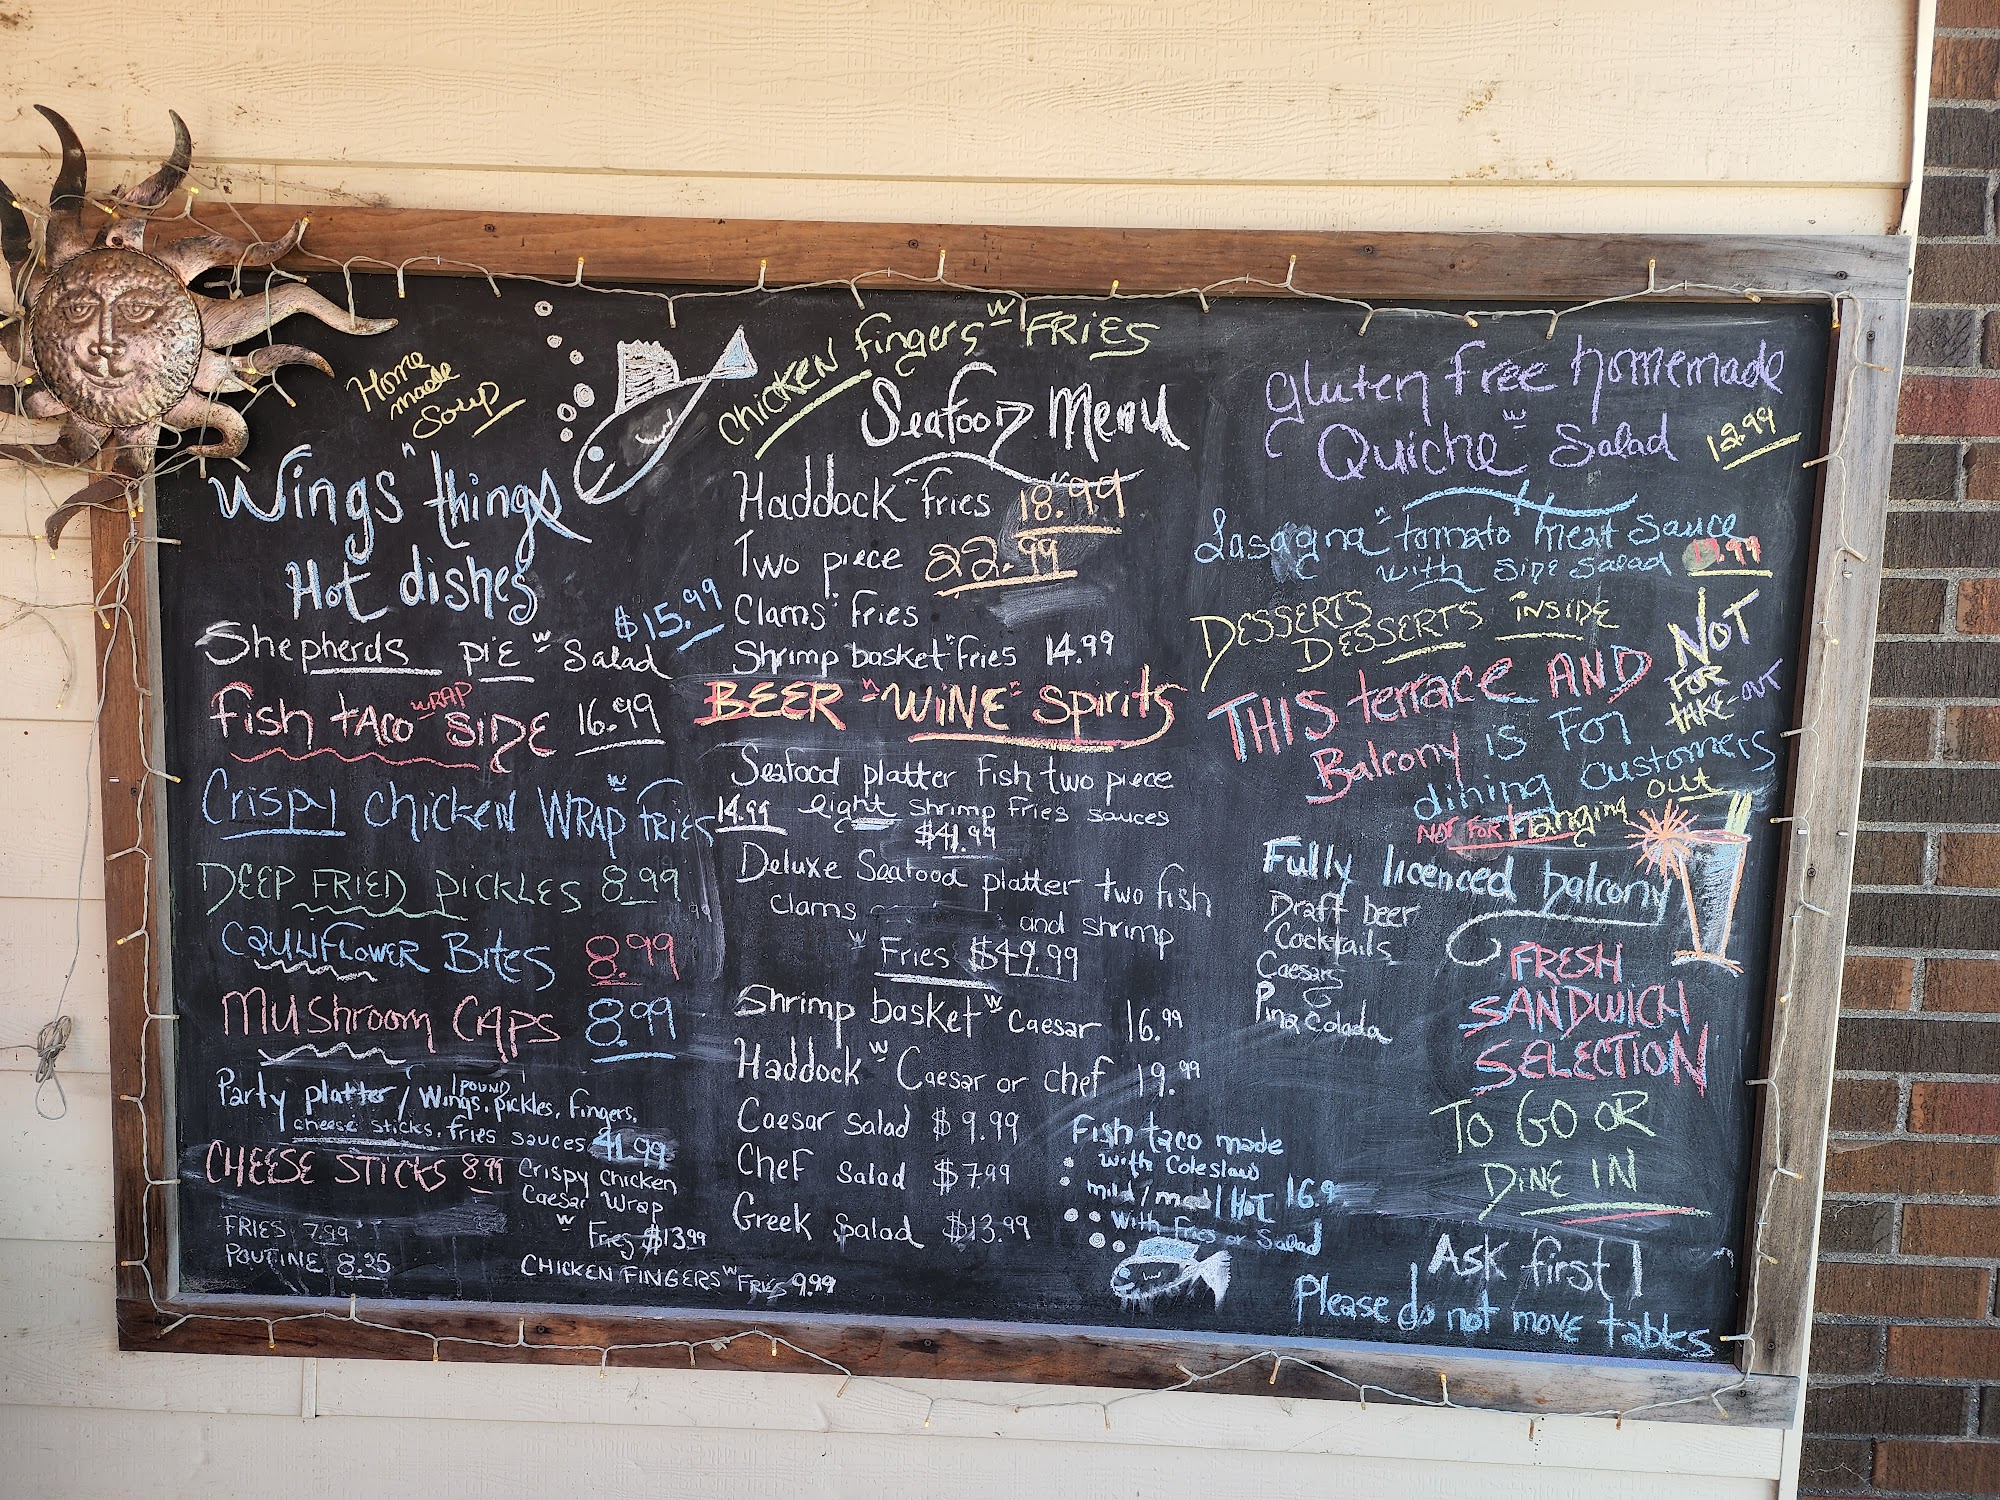 Home
made
Soup
Wings" things
Hot dishes
$15.99
Shepherds pie w Salad
fish taco WRAP SIDE 16.99
Crispy chicken WRAP w fries 14.99
DEEP FRIED PICKLES 8.99
CAULIFLOWER BITES 8.99
MUSHROOM CAPS 8.99
Party platter / 1 POUND Wings, pickles, fingers,
cheese sticks, fries sauces 41.99
CHEESE STICKS 8.99
Crispy chicken
Caesar Wrap
w Fries $13.99
FRIES 7.99
POUTINE 8.25
CHICKEN FINGERS w FRIES 9.99
CHICKEN fingers w FRIES
Seafood Menu
Haddock " fries 18.99
Two piece 22.99
Clams " fries
Shrimp basket " fries 14.99
BEER "WINE" Spirits
Seafood platter fish two piece
eight shrimp fries sauces
$41.99
Deluxe Seafood platter two fish
clams and shrimp
w Fries $49.99
Shrimp basket w Caesar 16.99
Haddock w Caesar or chef 19.99
Caesar Salad $9.99
Chef Salad $7.99
Greek Salad $13.99
Fish taco made
with Coleslaw
mild/med/HOT 16.9
with fries or Salad
Gluten free homemade
Quiche w Salad 12.99
Lasagna " tomato meat sauce
with side salad 19.99
DESSERTS
DESSERTS INSIDE
NOT
FOR
TAKE-OUT
THIS terrace AND
Balcony is FOR
dining customers
NOT FOR hanging out
Fully licenced balcony
Draft beer
Cocktails
Caesars
Pina Colada
FRESH
SANDWICH
SELECTION
TO GO OR
DINE IN
Ask first!
Please do not move tables